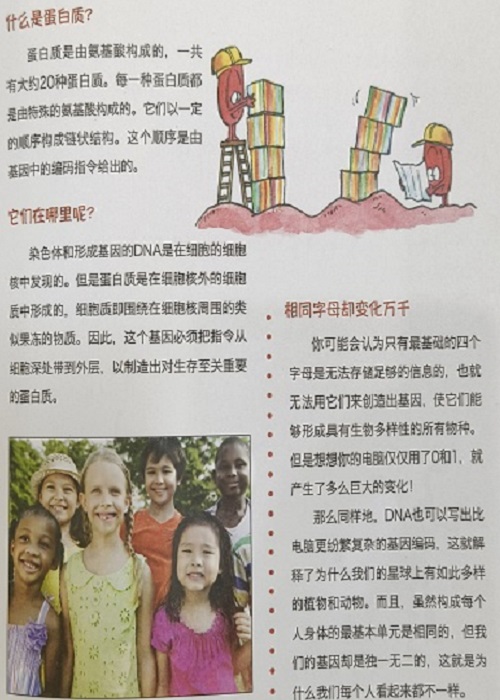 什么是蛋白质?
蛋白质是由氨基酸构成的，一共
有大约20种蛋白质。每一种蛋白质都
是由特殊的氨基酸构成的。它们以一定
的顺序构成链状结构。这个顺序是由
基因中的编码指令给出的。
它们在哪里呢?
染色体和形成基因的DNA是在细胞的细胞
核中发现的。但是蛋白质是在细胞核外的细胞
质中形成的，细胞质即围绕在细胞核周围的类
似果冻的物质。因此，这个基因必须把指令从
细胞深处带到外层，以制造出对生存至关重要
的蛋白质。
相同字母却变化万千
你可能会认为只有最基础的四个
字母是无法存储足够的信息的，也就
无法用它们来创造出基因，使它们能
够形成具有生物多样性的所有物种。
但是想想你的电脑仅仅用了0和1，就
产生了多么巨大的变化!
那么同样地，DNA也可以写出比
电脑更纷繁复杂的基因编码，这就解
释了为什么我们的星球上有如此多样
的植物和动物。而且，虽然构成每个
人身体的最基本单元是相同的，但我
们的基因却是独一无二的，这就是为
什么我们每个人看起来都不一样。